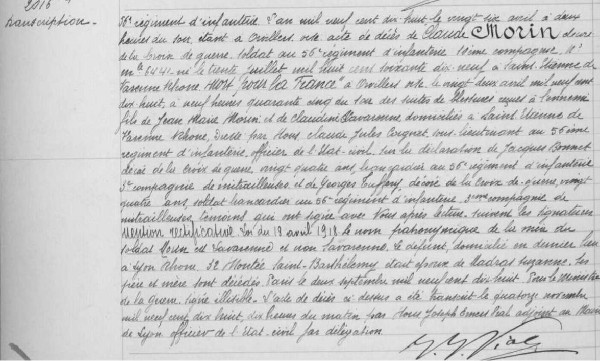 2016
transcription.
56e régiment d'infanterie. L'an mil neuf cent dix huit le vingt six avril à deux
heures du soir, étant à Orvillers, oise acte de décès de Claude MORIN décoré
de la Croix de guerre, soldat au 56e régiment d'infanterie 10ème compagnie. N°
mle 6441 né le trente juillet mil huit cent soixante dix neuf à Saint Etienne de
Varenne Rhône "MORT pour la France" à Orvillers oise le vingt deux avril mil neuf cent
dix huit, à neuf heures quarante cinq du soir des suites de blessures reçues à l'ennemi
fils de Jean Marie Morin et de Claudine Lavarenne domiciliés à Saint Etienne de
Varenne Rhône. Dressé par Nous Claude Jules sous-lieutenant au 56ème
régiment d'infanterie, officier de l'Etat-civil. Sur la déclaration de Jacques Bonnet
décoré de la Croix de guerre, vingt quatre ans, brancardier au 56e régiment d'infanterie
3e compagnie de mitrailleuses et de Georges décoré de la Croix de guerre, vingt
quatre ans, soldat brancardier au 56e régiment d'infanterie 3ème compagnie de
mitrailleuses, témoins qui ont signé avec Nous après lecture. suivent les signatures
Mention rectificative du 18 avril 1918. le nom patronymique de la mère du
soldat Morin est Lavarenne et non Savarenne. Le défunt, domicilié en dernier lieu
à Lyon Rhône, 32 Montée Saint-Barthélemy était époux de Madras Suzanne. Ses
père et mère sont décédés. Paris le deux septembre mil neuf cent dix huit. Pour le Ministre
de la guerre, signé illisible. L'acte de décès ci dessus a été transcrit le quatorze novembre
mil neuf cent dix huit, dix heures du matin par Nous Joseph Ernest Vial adjoint au Maire
de Lyon officier de l'Etat-civil par délégation